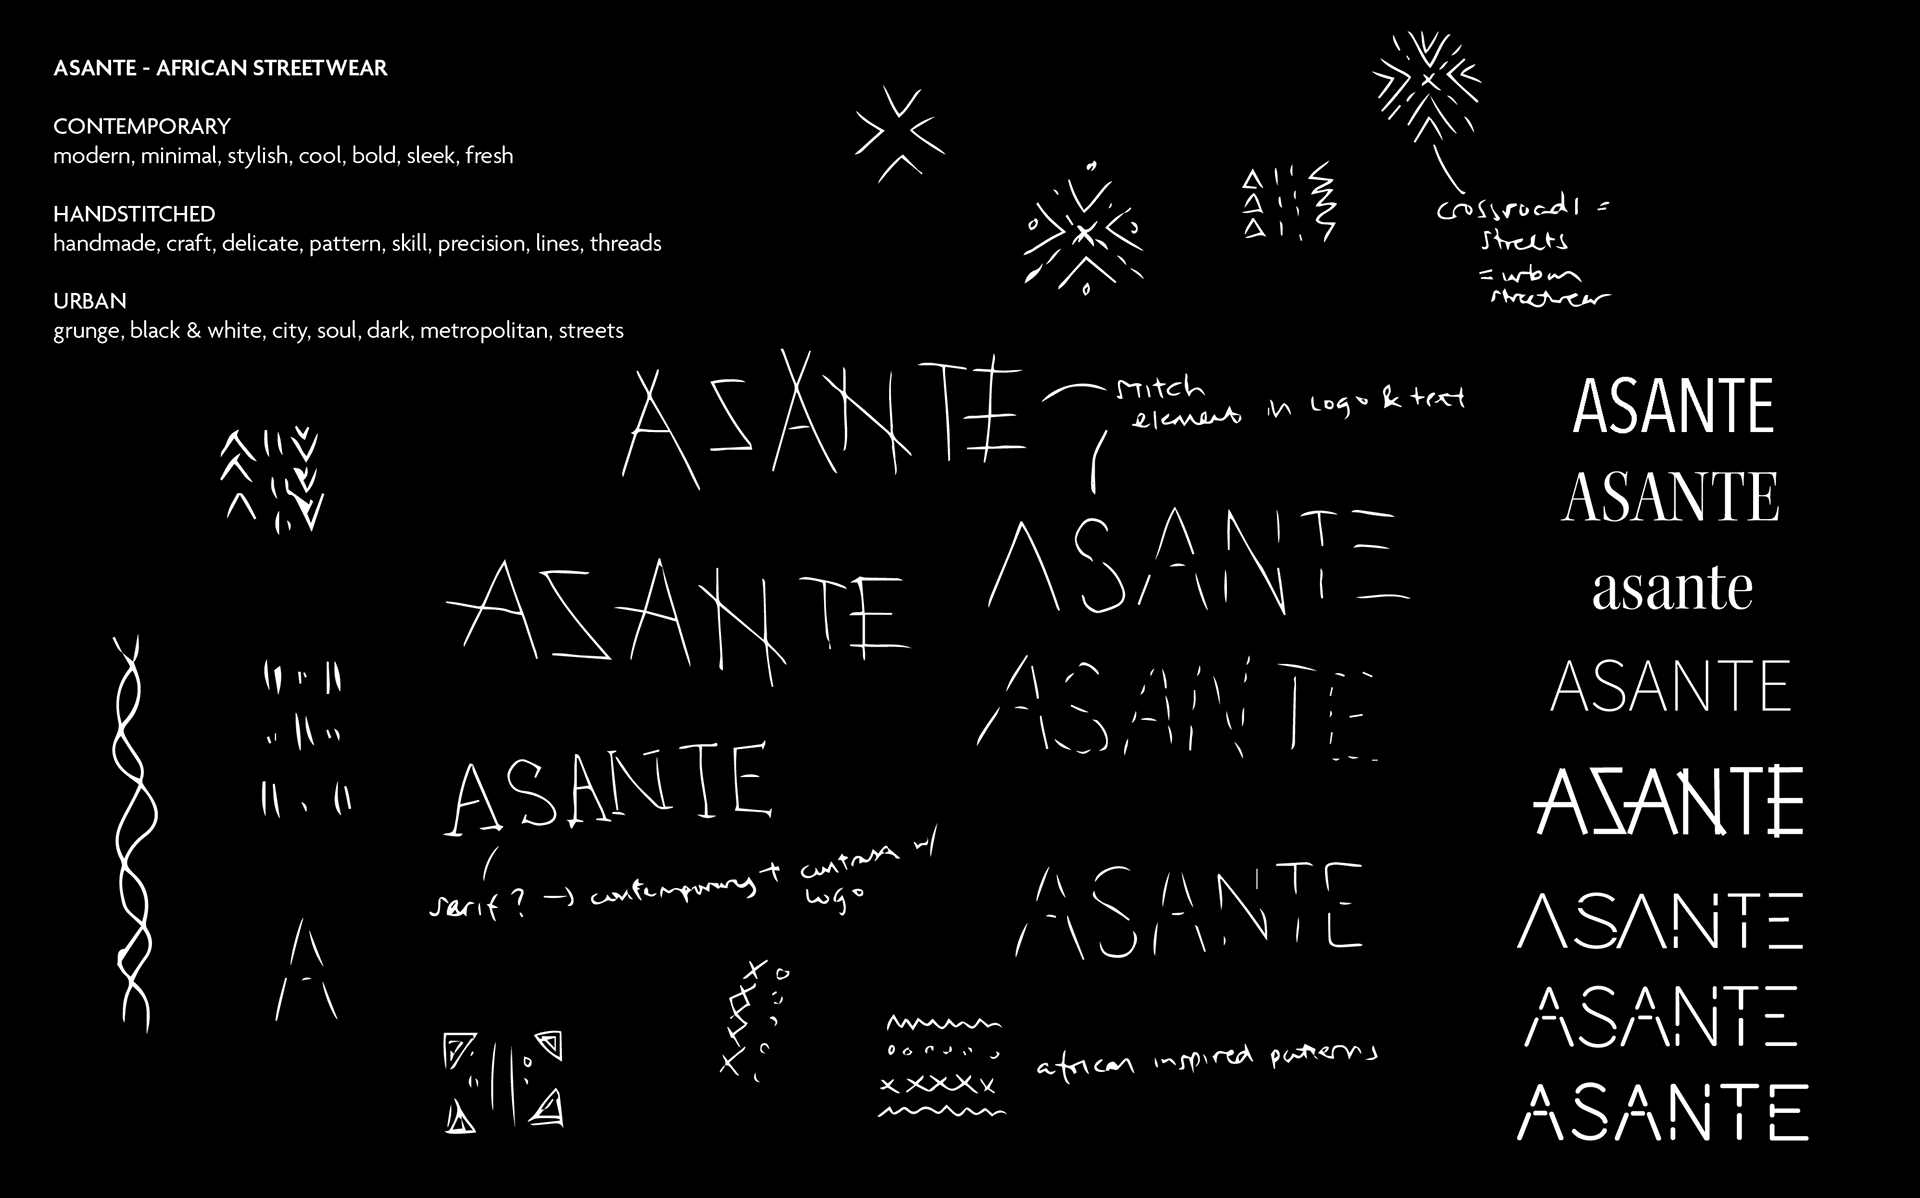 ASANTE - AFRICAN STREETWEAR
CONTEMPORARY
modern, minimal, stylish, cool, bold, sleek, fresh
HANDSTITCHED
handmade, craft, delicate, pattern, skill, precision, lines, threads
URBAN
grunge, black & white, city, soul, dark, metropolitan, streets
crossroads =
streets
= urban
streetwear
ASANTE
stitch
element in logo & text
ASANTE
ASANTE
ASANTE
ASANTE
serif? → contemporary + contrast w/
logo
ASANTE
A
african inspired patterns
ASANTE
ASANTE
asante
ASANTE
ASANTE
ASANTE
ASANTE
ASANTE